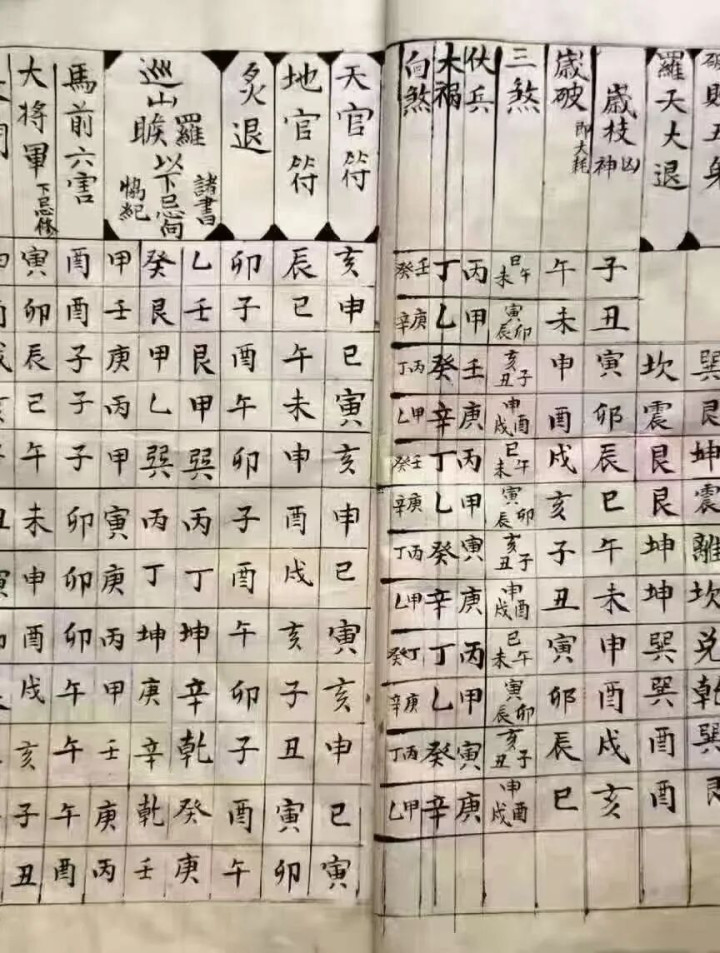 破敗五鬼
巽艮坤震離坎兌乾巽艮
羅天大退
坎震艮艮坤坤巽巽酉酉
歲枝神凶
子丑寅卯辰巳午未申酉戌亥
歲破 即大耗
午未申酉戌亥子丑寅卯辰巳
三煞
巳午未 寅卯辰 亥子丑 申酉戌 巳午未 寅卯辰 亥子丑 申酉戌 巳午未 寅卯辰 亥子丑 申酉戌
伏兵
丙甲壬庚丙甲寅庚丙甲寅庚
大禍
丁乙癸辛丁乙癸辛丁乙癸辛
向煞
壬癸 庚辛 丙丁 甲乙 壬癸 庚辛 丙丁 甲乙 丁癸 庚辛 丙丁 甲乙
天官符
亥申巳寅亥申巳寅亥申巳寅
地官符
辰巳午未申酉戌亥子丑寅卯
炙退
卯子酉午卯子酉午卯子酉午
巡山羅睺
諸書
以下忌向
乙壬艮甲巽丙丁坤辛乾癸庚
癸艮甲乙巽丙丁坤庚辛乾壬
甲壬庚丙甲寅庚丙甲壬庚丙
馬前六害
酉酉子子子卯卯卯午午午酉
大將軍 下忌修
寅卯辰巳午未申酉戌亥子丑